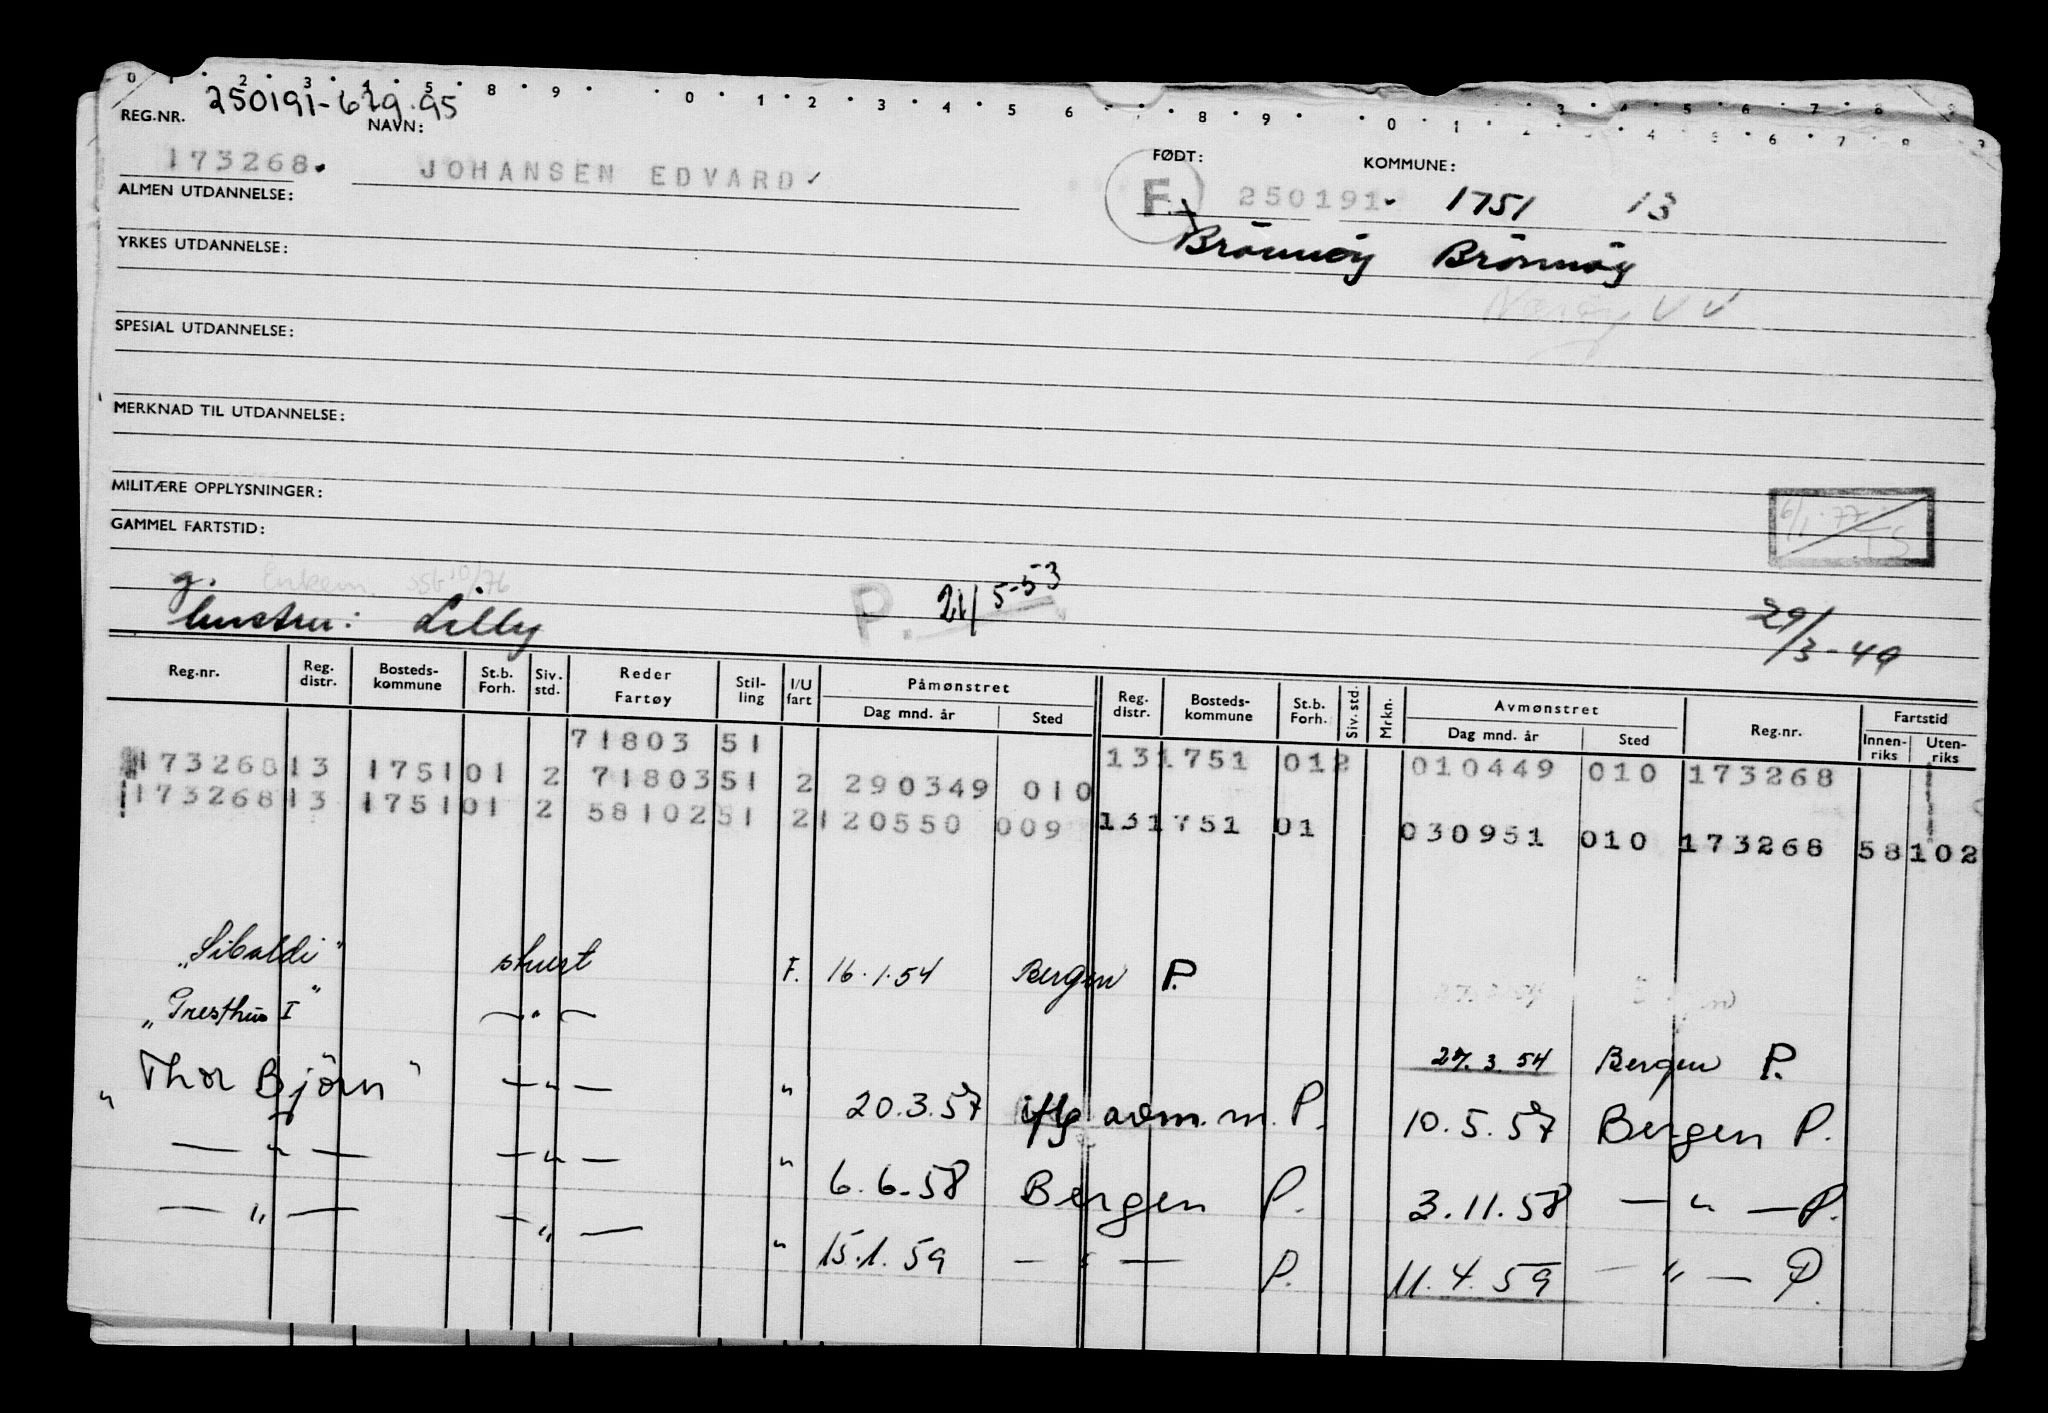 0 1 2 3 4 5 8 9 0 1 2 3 4 5 6 8 9 0 1
3 4 5 6 7 8
REG.NR. 250191-679.95
NAVN:
173268. JOHANSEN EDVARD
FØDT: KOMMUNE:
F 250191. 1751 13
ALMEN UTDANNELSE:
Brönnöy Brönnöy
YRKES UTDANNELSE:
Nærøy V V
SPESIAL UTDANNELSE:
MERKNAD TIL UTDANNELSE:
MILITÆRE OPPLYSNINGER:
6/1-77
GAMMEL FARTSTID:
g. Enkem.
hustru: Lilly P. 21/5-53 29/3-49
Reg.nr. Reg. distr. Bosteds-kommune St.b. Forh. Siv. std. Reder Fartøy Stil-ling I/U fart Påmønstret Dag mnd. år Sted Reg. distr. Bosteds-kommune St.b. Forh. Siv. std. Mrkn. Avmønstret Dag mnd. år Sted Reg.nr. Fartstid Innen-riks Uten-riks
71803 51
173268 13 1751 01 2 71803 51 2 290349 010 13 1751 012 010449 010 173268
173268 13 1751 01 2 58102 51 2 120550 009 13 1751 01 030951 010 173268 58 102
"Sibaldi" stuert F. 16.1.54 Bergen P.
"Gresthus I" — " — 27.3.54 Bergen P.
"Thor Björn" — " — " 20.3.57 iflg avm.m. P. 10.5.57 Bergen P.
— " — — " — " 6.6.58 Bergen P. 3.11.58 — " — P.
— " — — " — " 15.1.59 — " — P. 11.4.59 — " — P.